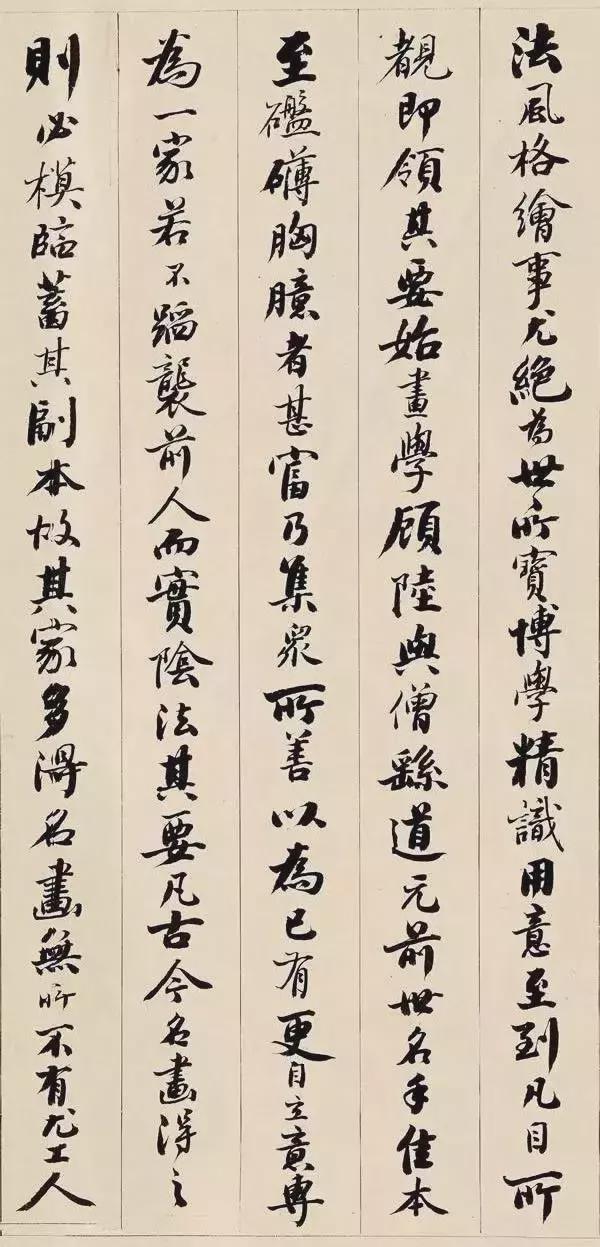 法風格繪事尤絕為世所寶博學精識用意至到凡目所
覩即領其要始畫學顧陸與僧繇道元前世名手佳本
至礠礴胸臆者甚富乃集眾所善以為己有更自立意專
為一家若不蹈襲前人而實陰法其要凡古今名畫得之
則必模臨蓄其副本故其家多得名畫無所不有尤工人